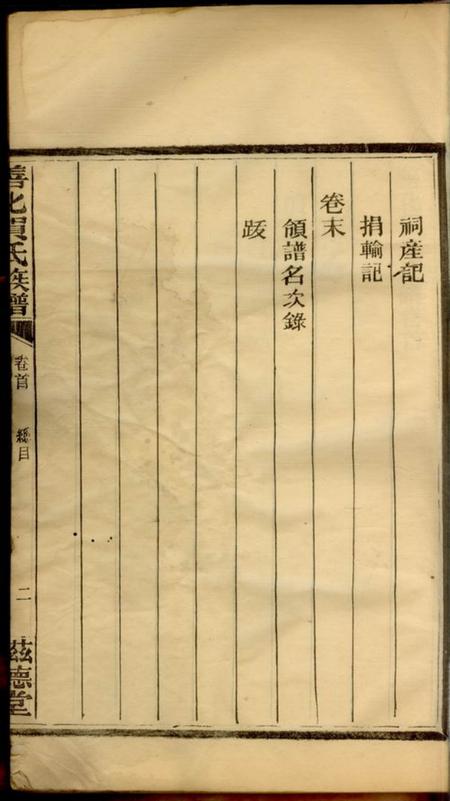 祠產記
捐輸記
卷末
領譜名次錄
跋
善化賀氏族譜
卷首
總目
二
茲德堂